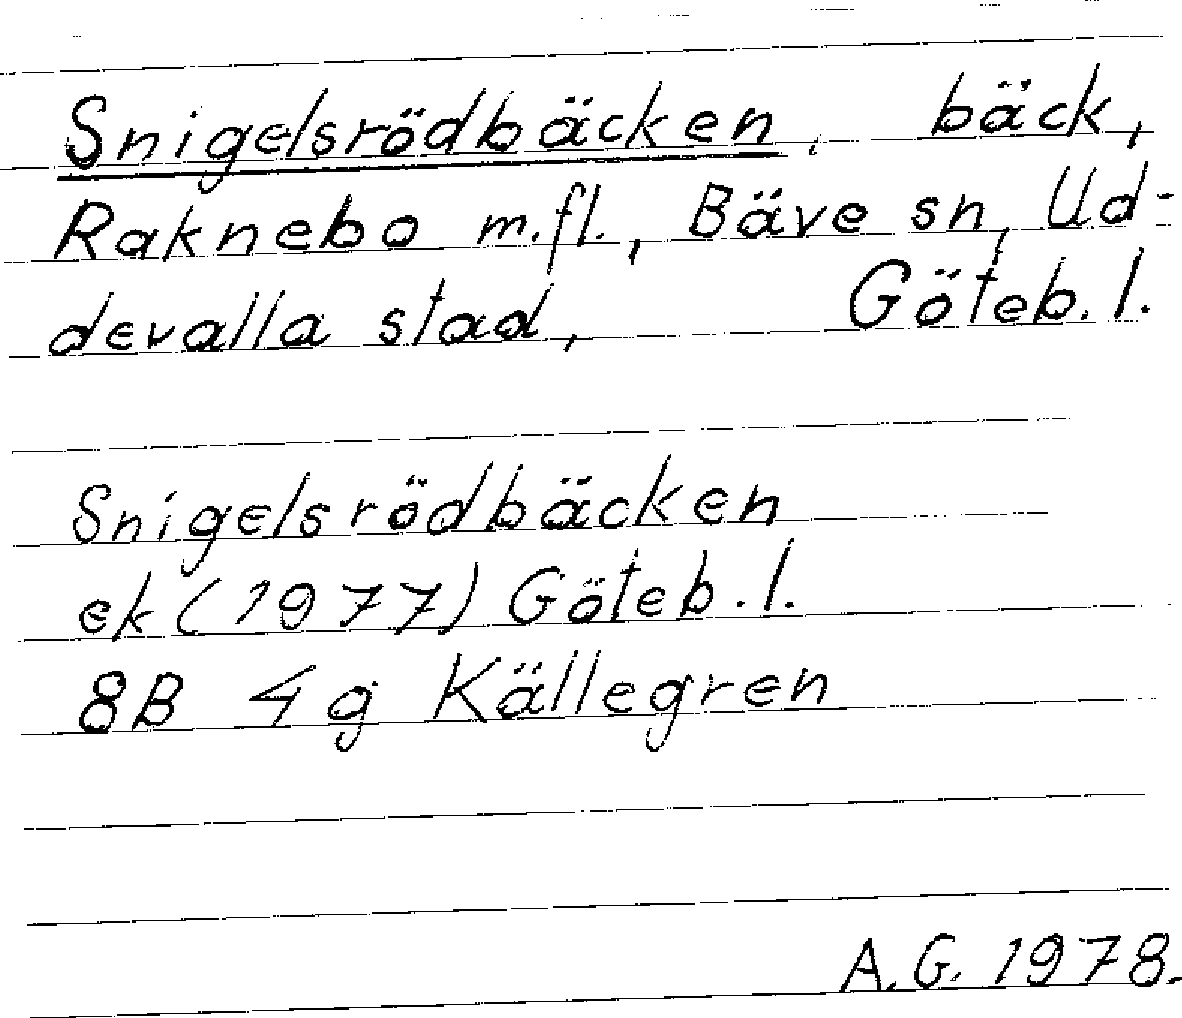 Snigelsrödbäcken, bäck,
Raknebo m.fl., Bäve sn, Ud-
devalla stad, Göteb. l.
Snigelsrödbäcken
ek (1977) Göteb. l.
8B 4g Källegren
A.G. 1978.